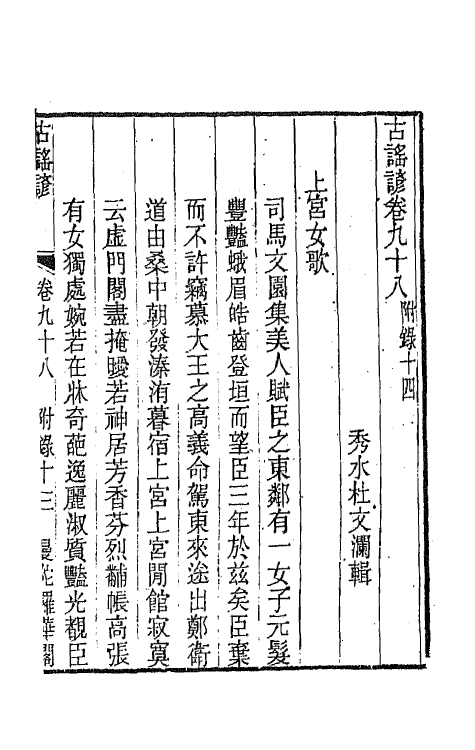 古謠諺卷九十八 附錄十四
秀水杜文瀾輯
上宮女歌
司馬文園集美人賦臣之東鄰有一女子元髮
豐豔蛾眉皓齒登垣而望臣三年於兹矣臣棄
而不許竊慕大王之高義命駕東來途出鄭衛
道由桑中朝發溱洧暮宿上宮上宮閒館寂寞
云虛門閣盡掩曖若神居芳香芬烈黼帳高張
有女獨處婉若在牀奇葩逸麗淑質豔光覩臣
古謠諺 卷九十八 附錄十三 曼陀羅華閣